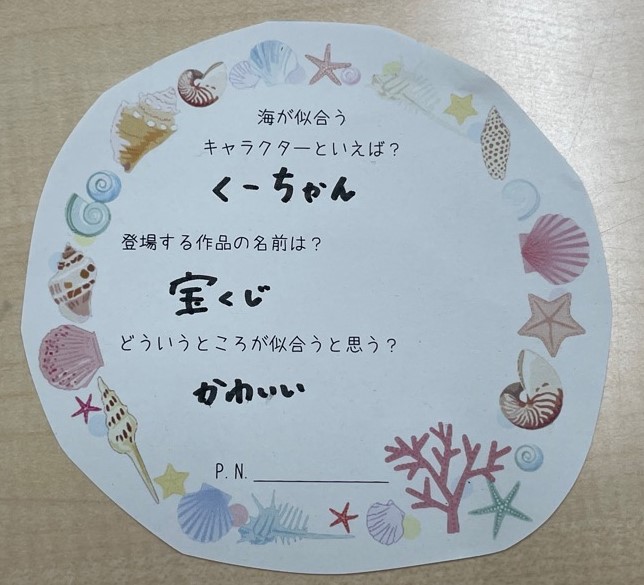 海が似合う
キャラクターといえば？
くーちゃん
登場する作品の名前は？
宝くじ
どういうところが似合うと思う？
かわいい
P.N.